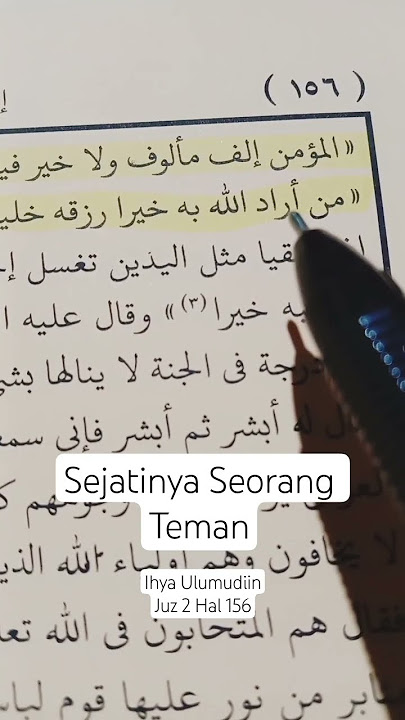 ( ١٥٦ )
« المؤمن إلف مألوف ولا خير
« من أراد الله به خيرا رزقه
مثل اليدين تغسل
خيرا (٣) » وقال عليه
درجة فى الجنة لا ينالها
له أبشر ثم أبشر فإنى
Sejatinya Seorang
Teman
لا يخافون وهم أولياء الله
Ihya Ulumudiin
Juz 2 Hal 156
فقال هم المتحابون فى الله
من نور عليها قوم